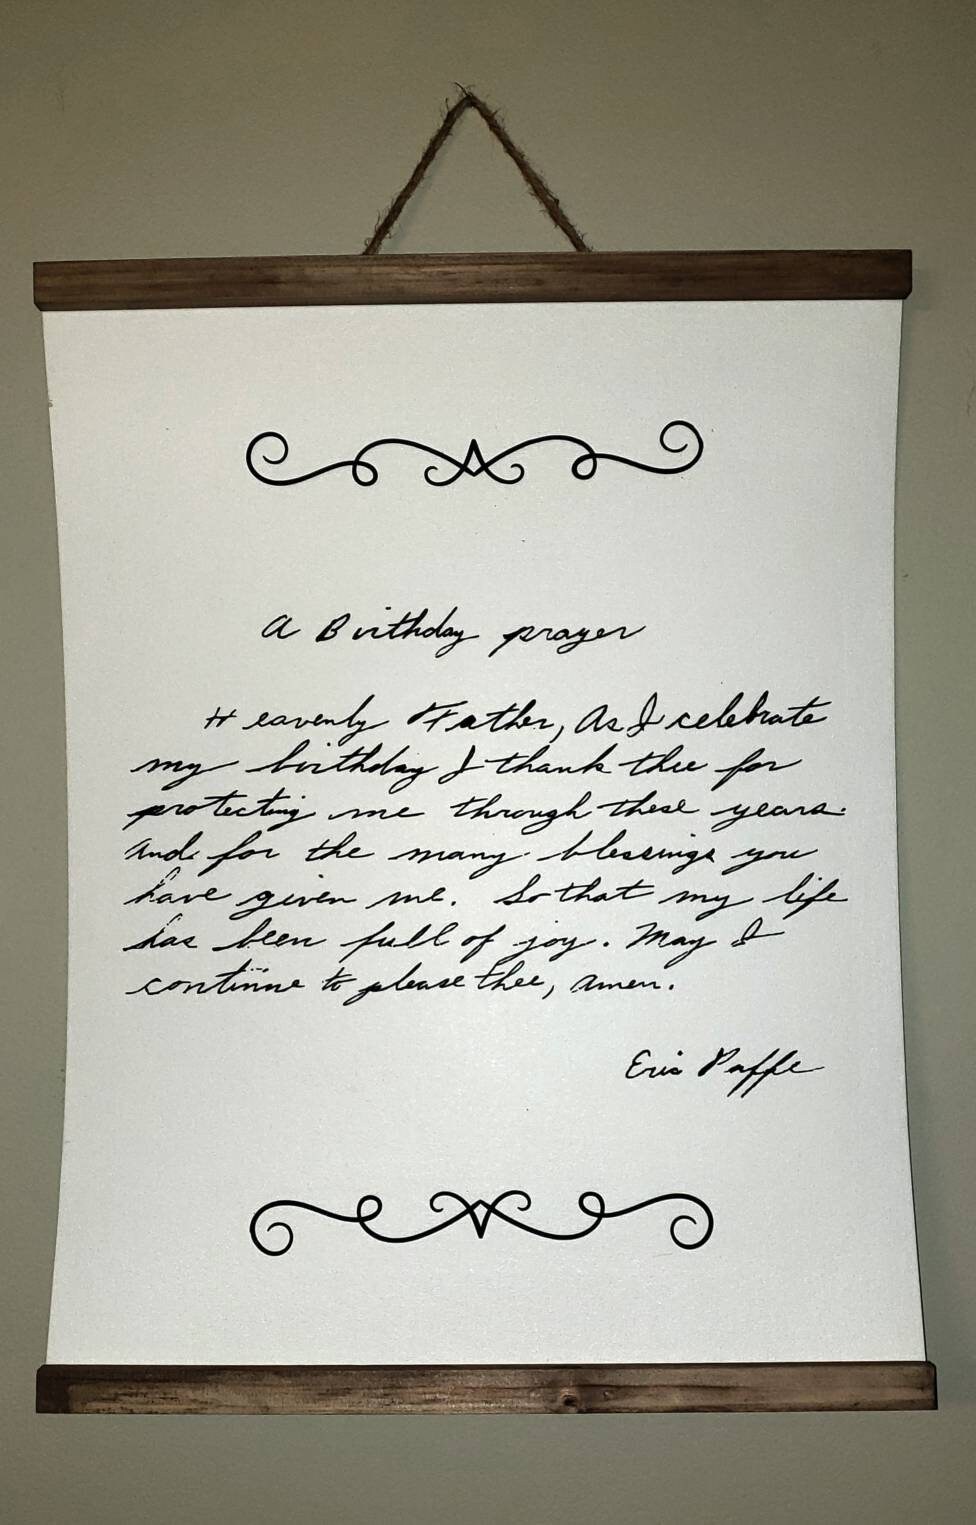 A Birthday prayer
Heavenly Father, As I celebrate
my birthday I thank thee for
protecting me through these years.
And for the many blessings you
have given me. So that my life
has been full of joy. May I
continue to please thee, Amen.
Eric Paffe